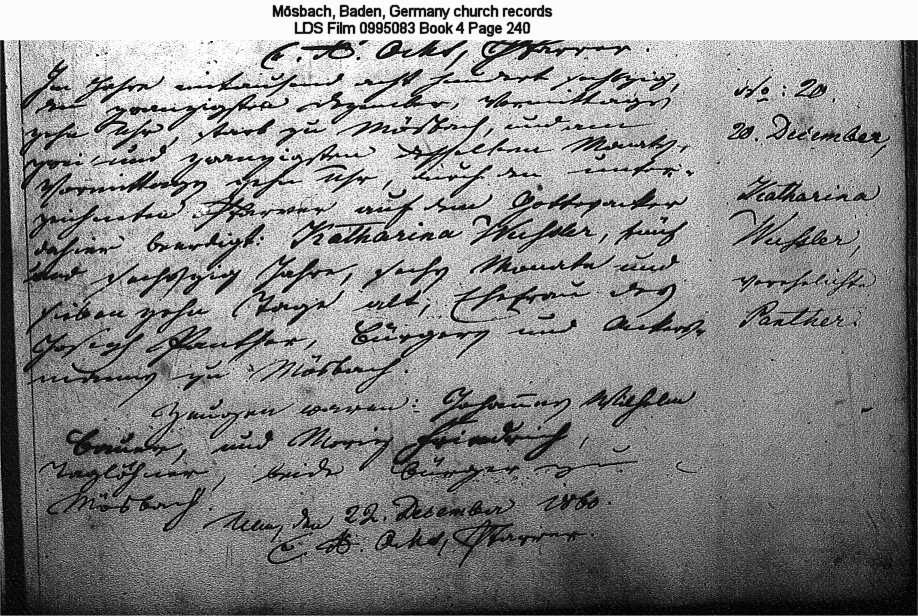 Mösbach, Baden, Germany church records
LDS Film 0995083 Book 4 Page 240
Ochs, Pfarrer.
Im Jahre eintausend acht hundert sechszig,
den zwanzigsten Dezember, Vormittags
zehn Uhr, starb zu Mösbach, und am
zwei und zwanzigsten desselben Monats,
Vormittags zehn Uhr, wurde von unter-
zeichneten Pfarrer auf dem Gottesacker
dahier beerdigt: Katharina Wußler, fünf
und sechszig Jahre, sechs Monate und
sieben zehn Tage alt; Ehefrau des
Joseph Panther, Bürgers und Ackers-
manns zu Mösbach.
Zeugen waren: Johannes Wilhelm
Bauer, und Moriz Friedrich,
Taglöhner, beide Bürger zu
Mösbach.
Ulm, den 22. Dezember 1860.
Ochs, Pfarrer.
No: 20.
20. December,
Katharina
Wußler,
verehelichte
Panther.